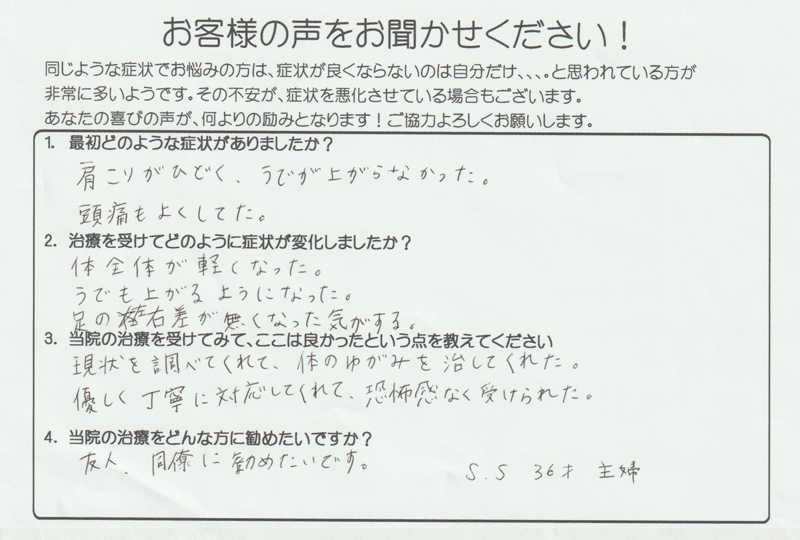 お客様の声をお聞かせください！
同じような症状でお悩みの方は、症状が良くならないのは自分だけ、、、。と思われている方が
非常に多いようです。その不安が、症状を悪化させている場合もございます。
あなたの喜びの声が、何よりの励みとなります！ご協力よろしくお願いします。
1. 最初どのような症状がありましたか？
肩こりがひどく、うでが上がらなかった。
頭痛もよくしてた。
2. 治療を受けてどのように症状が変化しましたか？
体全体が軽くなった。
うでも上がるようになった。
足の左右差が無くなった気がする。
3. 当院の治療を受けてみて、ここは良かったという点を教えてください
現状を調べてくれて、体のゆがみを治してくれた。
優しく丁寧に対応してくれて、恐怖感なく受けられた。
4. 当院の治療をどんな方に勧めたいですか？
友人、同僚に勧めたいです。
S.S 36才 主婦